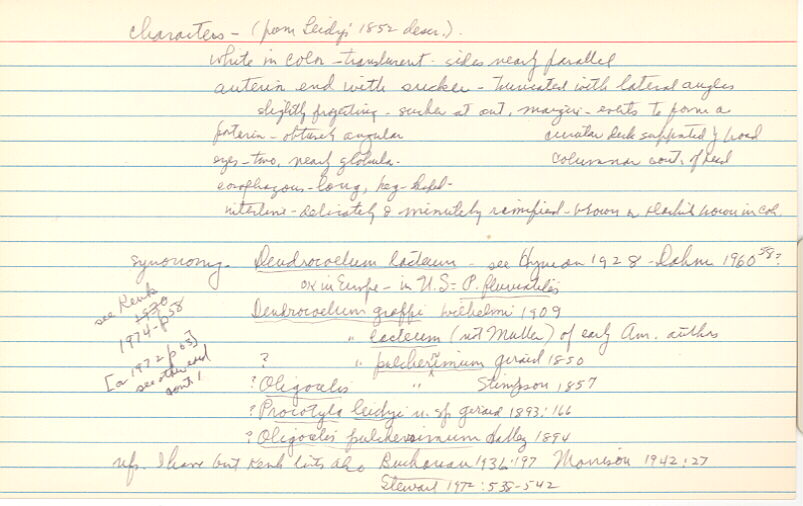 characters – (from Leidy's 1852 descr.).
white in color – translucent – sides nearly parallel
anterior end with sucker – truncated with lateral angles
slightly projecting – sucker at ant. margin – everts to form a
posterior – obtusely angular circular disk supported by broad
eyes – two, nearly globular – columnar cont. of head
esophagous – long,
intestine – delicately & minutely ramified – brown or blackish brown in col.
synonomy – Dendrocoelum lacteum – see Hyman 1928 – Dahm 1960 58?
OK in Europe – in U.S = P. fluviatilis
see Kenk
1970
1974 – p 58
Dendrocoelum graffi Wilhelmi 1909
" lacteum (not Muller) of early Am. authors
[or 1972 p 63]
see other card
? " pulcherrimum Girard 1850
? Oligocelis " Stimpson 1857
? Procotyla leidyi n. sp Girard 1893:166
? Oligocelis pulcherrimum Hallez 1894
refs. I have but Kenk lists also Buchanan 1936:197 Morrison 1942:27
Stewart 1972:538–542